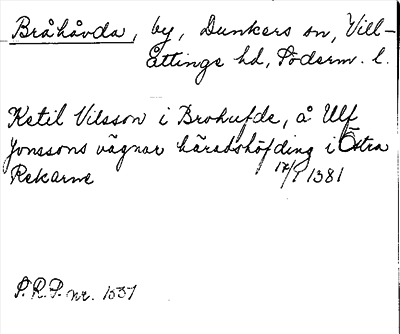 Bråhåvda, by, Dunkers sn, Vill-
åttinge hd, Söderm. l.
Ketil Vilsson i Brohufde, å Ulf
Jonssons vägnar häradshöfding i Östra
Rekarne 17/9 1381
S.R.P. nr. 1537